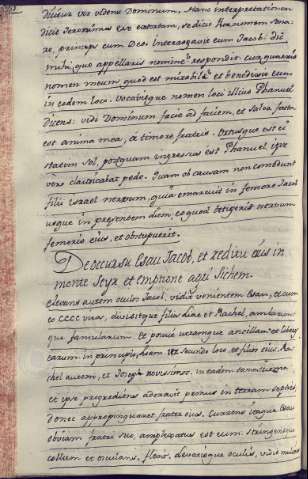 dicitur vir videns Dominum. Hanc interpretationem
dicit Jeronimus
princeps cum Deo. interrogavit eum Jacob: dic
mihi, quo appellaris nomine? respondit: cur quaeris
nomen meum, quod est mirabile et benedixit eum
in eodem loco. Vocavitque nomen loci illius Phanuel
dicens: vidi Dominum facie ad faciem, et salva facta
est anima mea, à timore fratris. Ortusque est ei
statim sol, postquam ingressus est Phanuel, ipse
vero claudicabat pede. Quam ob causam non comedunt
filii Israel nervum, qui emarcuit in femore Jacob
usque in presentem diem, eo quod tetigerit nervum
femoris eius, et obstupuerit.
De occursu Esau Jacob, et reditu eius in
monte Seyr et emptione agri Sichem.
elevans autem oculos Jacob, vidit venientem Esau, et cum
eo CCCC viros, divisitque filios Liae et Rachel, ambarum
que famularum et posuit utramque ancillam et liberos
earum in principio, Liam in secundo loco, et filios eius, Ra-
chel autem, et Joseph novissimos.
et ipse progrediens adoravit pronus in terram septies,
donec appropinquaret frater eius. Currens itaque Esau
obviam fratri suo, amplexatus est eum: stringensque
collum et osculans, flevit, levatisque oculis, vidit mulieres